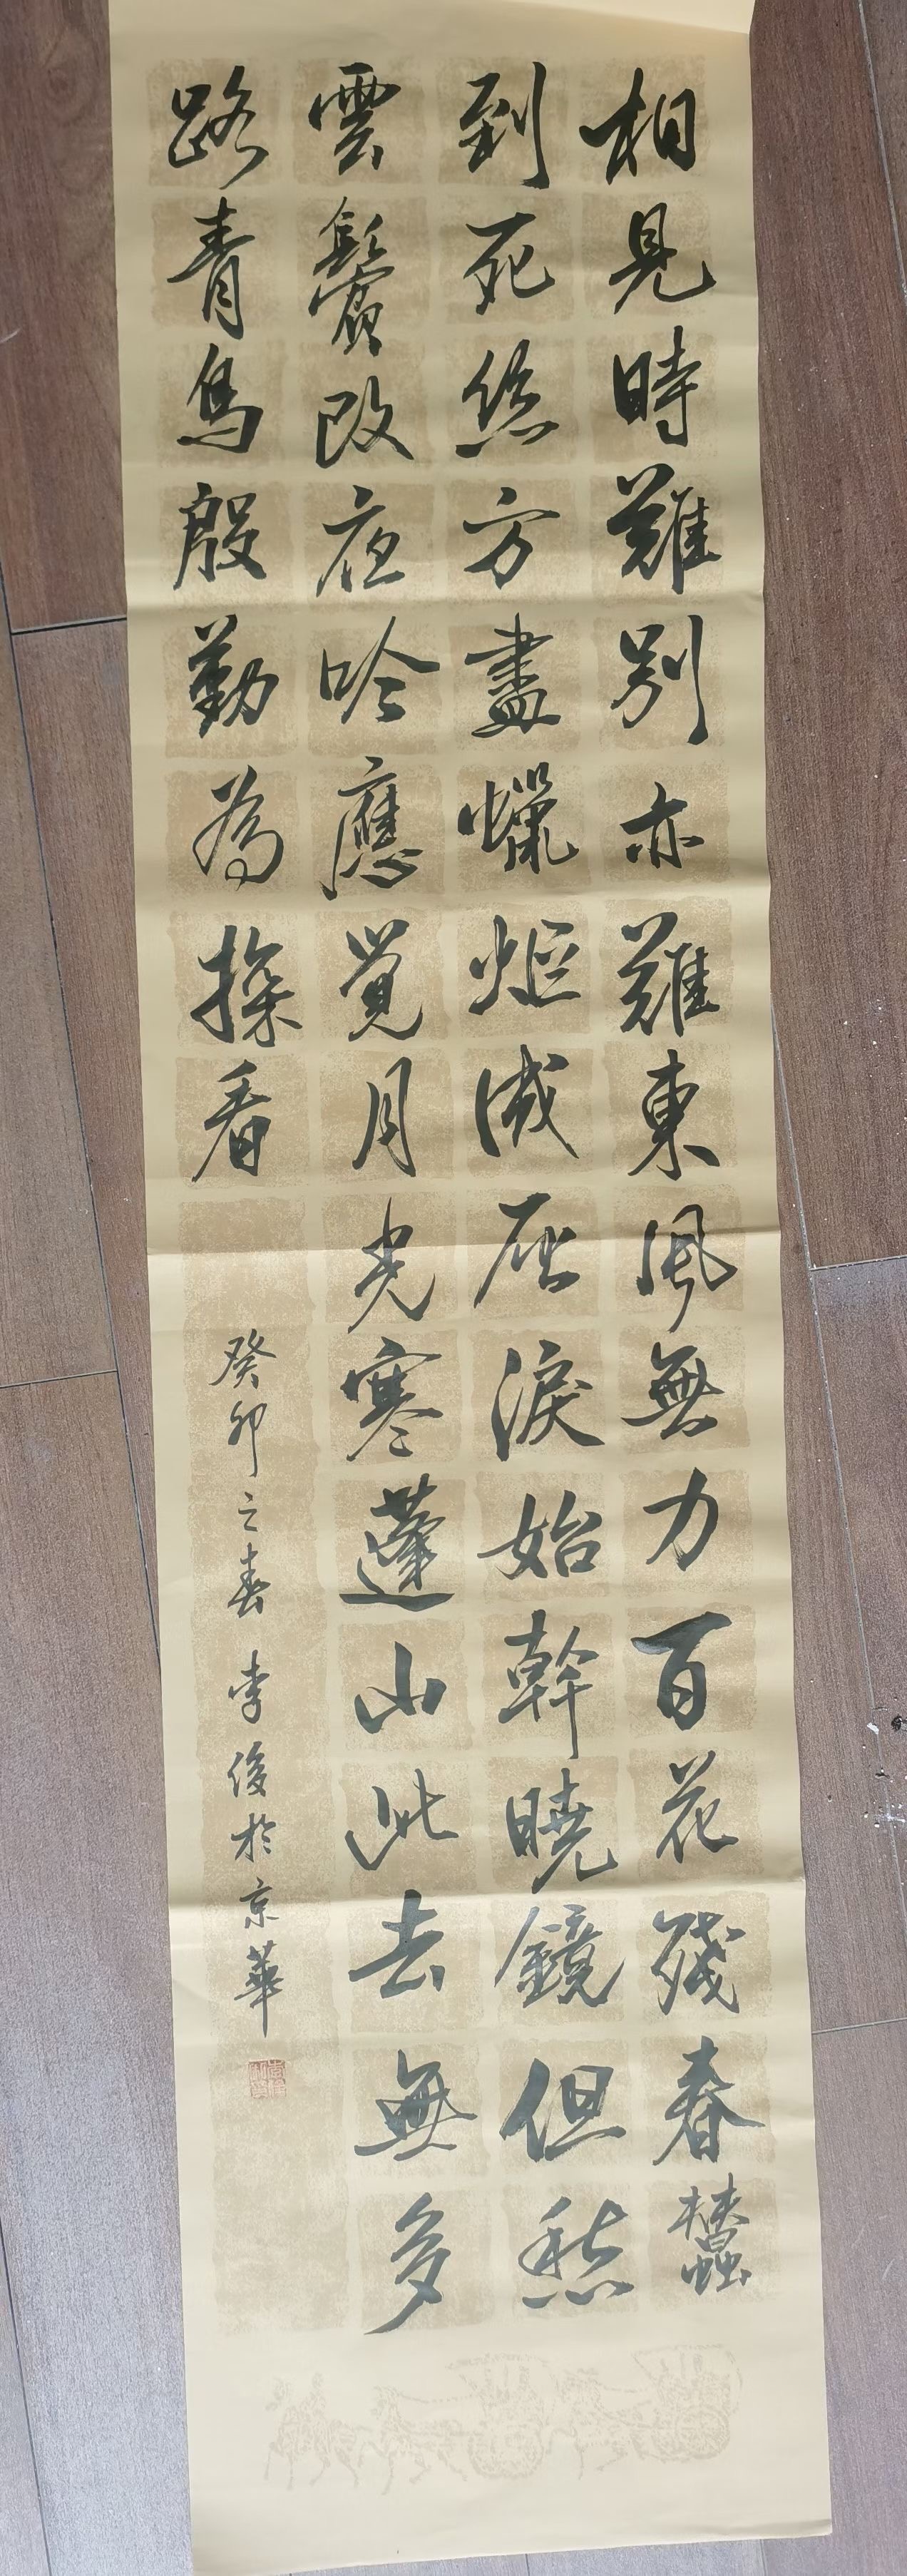 相見時難別亦難東風無力百花殘春蠶
到死絲方盡蠟炬成灰淚始幹曉鏡但愁
雲鬢改夜吟應覺月光寒蓬山此去無多
路青鳥殷勤為探看
癸卯之春李俊於京華